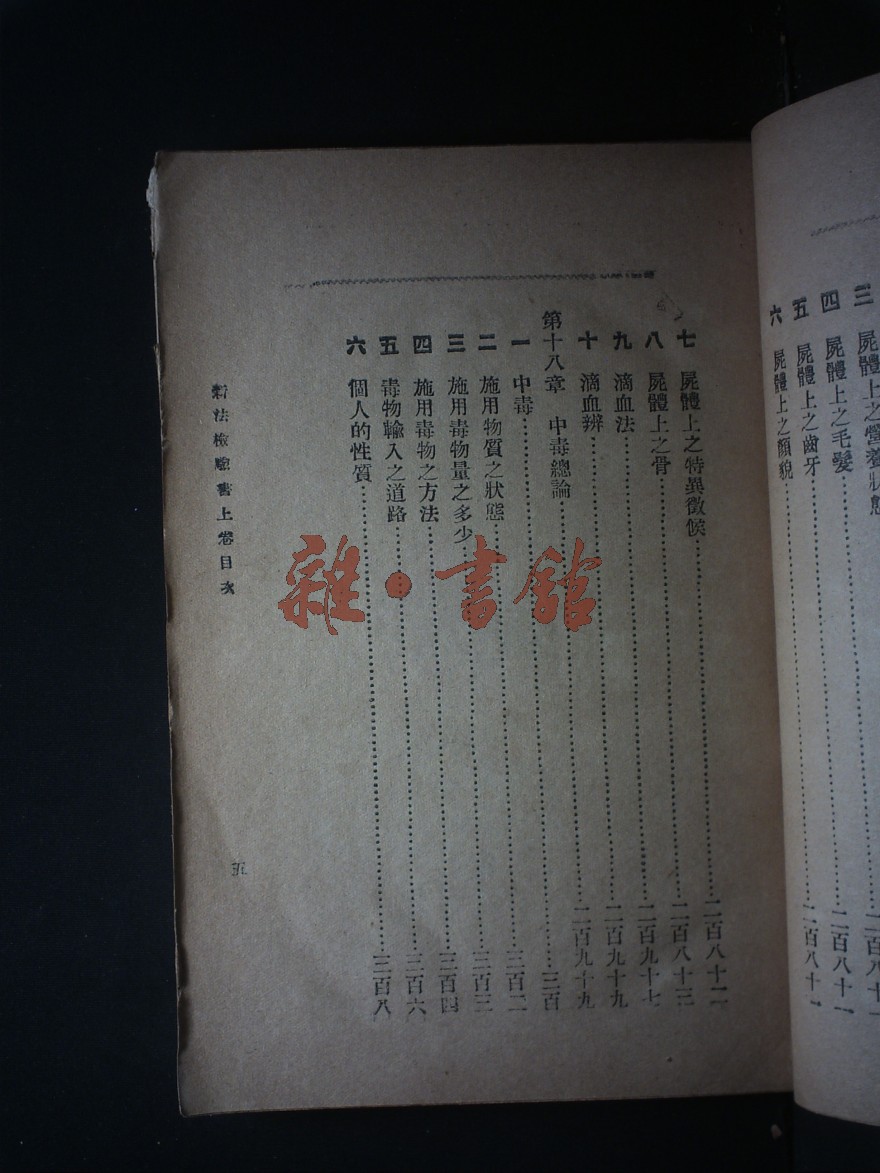 三 屍體上之營養狀態
四 屍體上之毛髮……二百八十一
五 屍體上之齒牙……二百八十一
六 屍體上之顏貌……二百八十一
七 屍體上之特異徵候……二百八十二
八 屍體上之骨……二百八十三
九 滴血法……二百九十七
十 滴血辨……二百九十九
第十八章 中毒總論……二百九十九
一 中毒……三百
二 施用物質之狀態……三百二
三 施用毒物量之多少……三百三
四 施用毒物之方法……三百四
五 毒物輸入之道路……三百六
六 個人的性質……三百八
新法檢驗書上卷目次
五
雜·書館